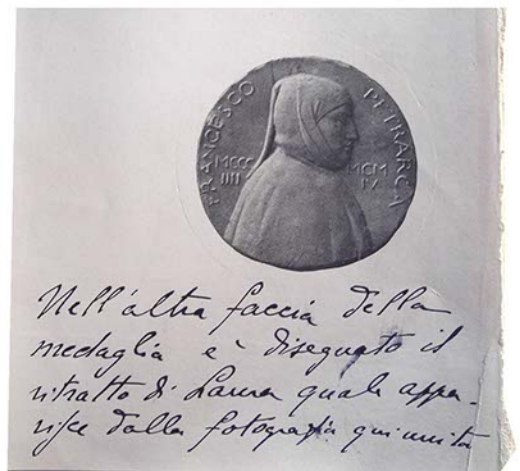 FRANCESCO PETRARCA
MCCC MCM
IIII IV
Nell'altra faccia della
medaglia è disegnato il
ritratto di Laura quale appa-
risce dalla fotografia qui unita